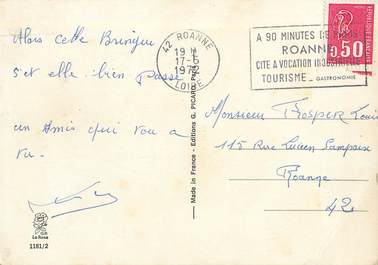 Alors cette Bringue
s'est elle bien passé
un amis qui vou a
vu.
La Rose
1181/2
Made in France - Editions G. PICARD Paris
42 ROANNE
19 H
17-5
LOIRE
A 90 MINUTES DE
ROANNE
CITE A VOCATION INDUSTRIELLE
TOURISME - GASTRONOMIE
0,50
Monsieur Prosper Louis
115 Rue Lucien Sampaix
Roanne
42